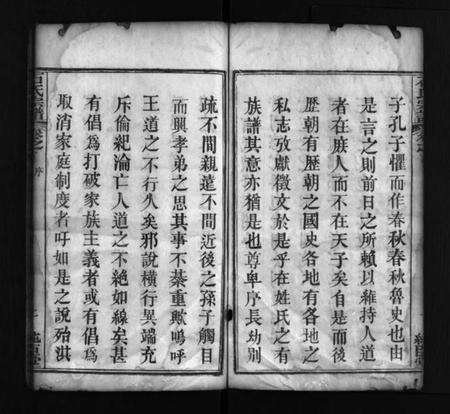 子孔子懼而作春秋春秋魯史也由
是言之則前日之所賴以維持人道
者在庶人而不在天子矣自是而後
歷朝有歷朝之國史各地有各地之
私志攷獻徵文於是乎在姓氏之有
族譜其意亦猶是也尊卑序長幼別
疏不間親遠不間近後之孫子觸目
而興孝弟之思其事不綦重歟嗚呼
王道之不行久矣邪說橫行異端充
斥倫紀淪亡人道之不絕如線矣甚
有倡為打破家族主義者或有倡為
取消家庭制度者吁如是之說殆洪
石氏宗譜 卷之 序